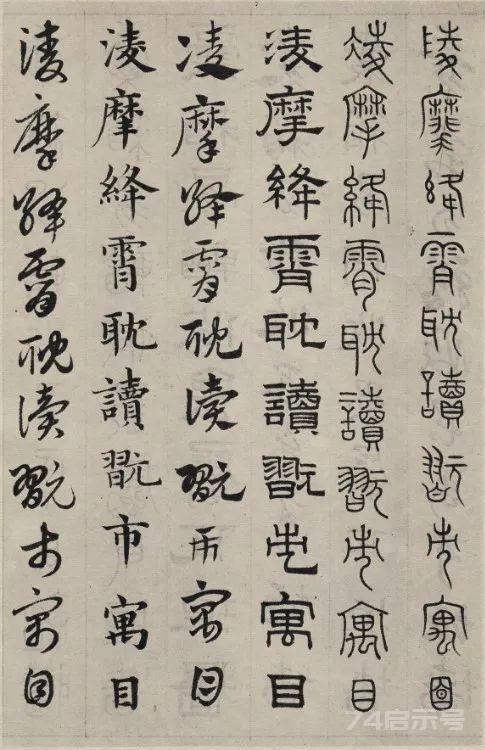 凌摩絳霄耽讀翫市寓目
凌摩絳霄耽讀翫市寓目
凌摩絳霄耽讀翫市寓目
凌摩絳霄耽讀翫市寓目
凌摩絳霄耽讀翫市寓目
凌摩絳霄耽讀翫市寓目
74启示号